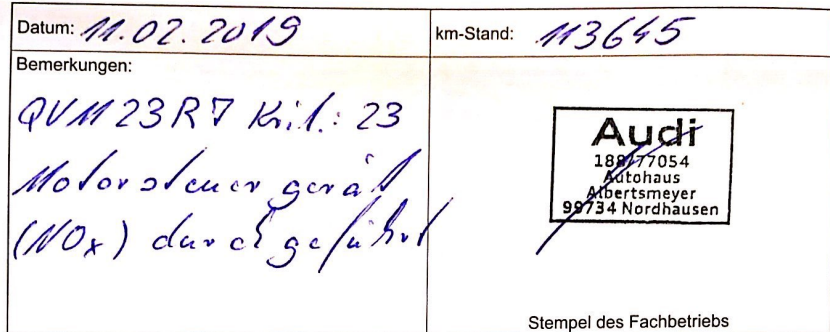 Datum: 11.02.2019
km-Stand: 113645
Bemerkungen:
QVM 23R7 Krit.: 23
Motorsteuergerät
(NOx) durchgeführt
Audi
188/77054
Autohaus
Albertsmeyer
99734 Nordhausen
Stempel des Fachbetriebs